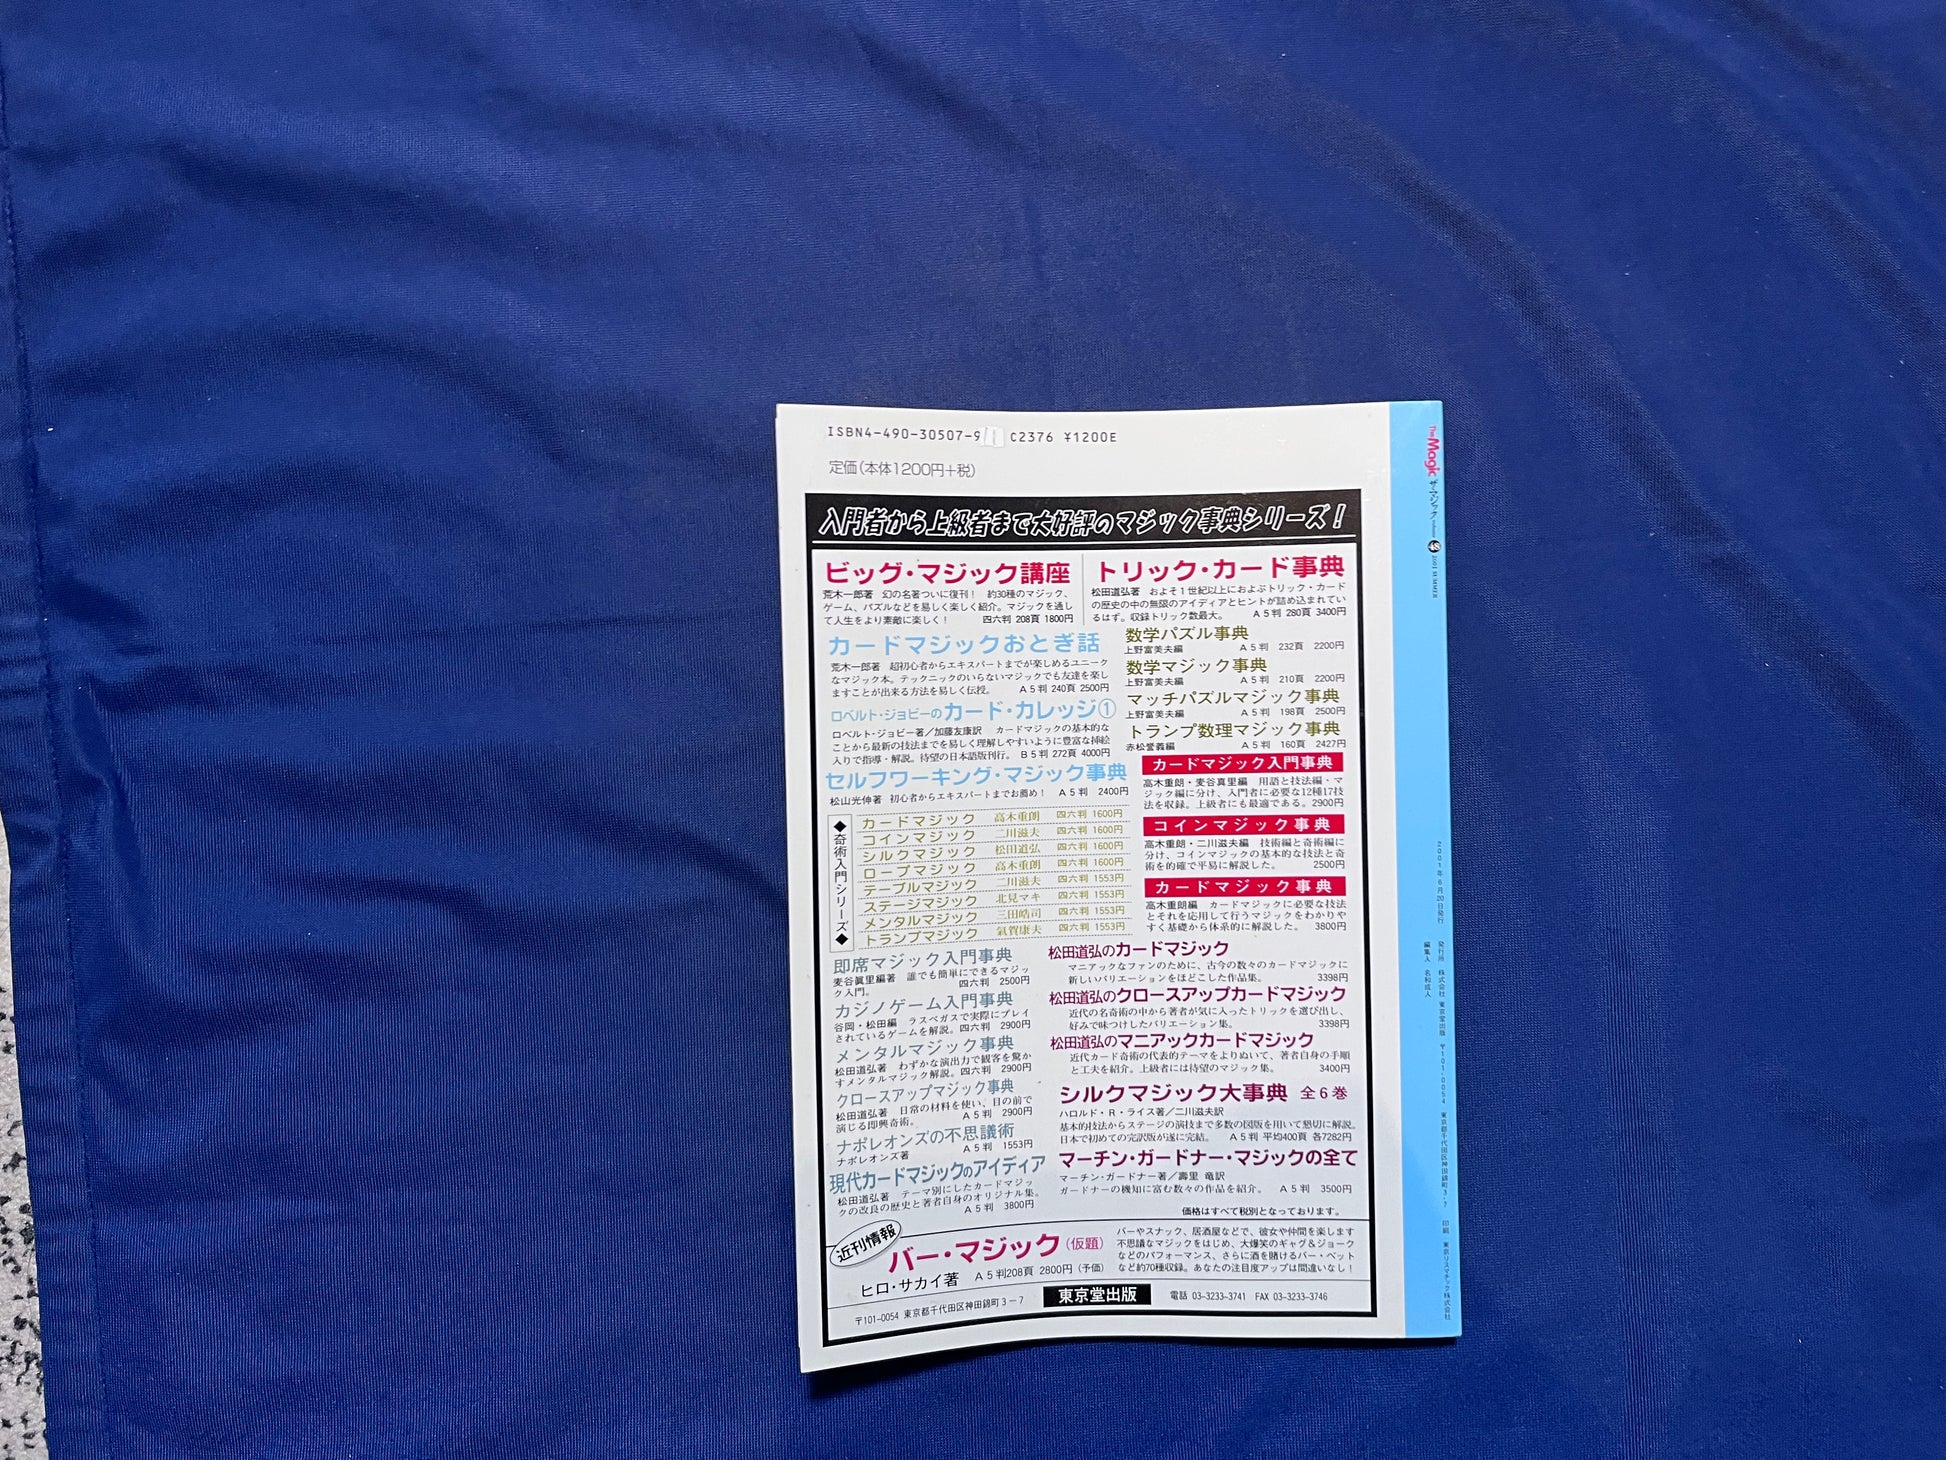 ISBN4-490-30507-9 C2376 ¥1200E
定価(本体1200円+税)
入門者から上級者まで大好評のマジック事典シリーズ!
ビッグ・マジック講座
荒木一郎著 幻の名著ついに復刊! 約30種のマジック、
ゲーム、パズルなどを易しく楽しく紹介。マジックを通し
て人生をより素敵に楽しく! 四六判 208頁 1800円
カードマジックおとぎ話
荒木一郎著 超初心者からエキスパートまでが楽しめるユニーク
なマジック本。テックニックのいらないマジックでも友達を楽し
ますことが出来る方法を易しく伝授。 A5判 240頁 2500円
ロベルト・ジョビーのカード・カレッジ①
ロベルト・ジョビー著/加藤友康訳 カードマジックの基本的な
ことから最新の技法までを易しく理解しやすいように豊富な挿絵
入りで指導・解説。待望の日本語版刊行。 B5判 272頁 4000円
セルフワーキング・マジック事典
松山光伸著 初心者からエキスパートまでお薦め! A5判 2400円
◆奇術入門シリーズ◆
カードマジック 高木重朗 四六判 1600円
コインマジック 二川滋夫 四六判 1600円
シルクマジック 松田道弘 四六判 1600円
ロープマジック 高木重朗 四六判 1600円
テーブルマジック 二川滋夫 四六判 1553円
ステージマジック 北見マキ 四六判 1553円
メンタルマジック 三田皓司 四六判 1553円
トランプマジック 氣賀康夫 四六判 1553円
即席マジック入門事典
麦谷眞里編著 誰でも簡単にできるマジッ
ク入門。 四六判 2500円
カジノゲーム入門事典
谷岡・松田編 ラスベガスで実際にプレイ
されているゲームを解説。四六判 2900円
メンタルマジック事典
松田道弘著 わずかな演出力で観客を驚か
すメンタルマジック解説。四六判 2900円
クロースアップマジック事典
松田道弘著 日常の材料を使い、目の前で
演じる即興奇術。 A5判 2900円
ナポレオンズの不思議術
ナポレオンズ著 A5判 1553円
現代カードマジックのアイディア
松田道弘著 テーマ別にしたカードマジッ
クの改良の歴史と著者自身のオリジナル集。
A5判 3800円
トリック・カード事典
松田道弘著 およそ1世紀以上におよぶトリック・カード
の歴史の中の無限のアイディアとヒントが詰め込まれてい
るはず。収録トリック数最大。 A5判 280頁 3400円
数学パズル事典
上野富美夫編 A5判 232頁 2200円
数学マジック事典
上野富美夫編 A5判 210頁 2200円
マッチパズルマジック事典
上野富美夫編 A5判 198頁 2500円
トランプ数理マジック事典
赤松誉義編 A5判 160頁 2427円
カードマジック入門事典
高木重朗・麦谷眞里編 用語と技法編・マ
ジック編に分け、入門者に必要な12種17技
法を収録。上級者にも最適である。2900円
コインマジック事典
高木重朗・二川滋夫編 技術編と奇術編に
分け、コインマジックの基本的な技法と奇
術を的確で平易に解説した。 2500円
カードマジック事典
高木重朗編 カードマジックに必要な技法
とそれを応用して行うマジックをわかりや
すく基礎から体系的に解説した。 3800円
松田道弘のカードマジック
マニアックなファンのために、古今の数々のカードマジックに
新しいバリエーションをほどこした作品集。 3398円
松田道弘のクロースアップカードマジック
近代の名奇術の中から著者が気に入ったトリックを選び出し、
好みで味つけしたバリエーション集。 3398円
松田道弘のマニアックカードマジック
近代カード奇術の代表的テーマをよりぬいて、著者自身の手順
と工夫を紹介。上級者には待望のマジック集。 3400円
シルクマジック大事典 全6巻
ハロルド・R・ライス著/二川滋夫訳
基本的技法からステージの演技まで多数の図版を用いて懇切に解説。
日本で初めての完訳版が遂に完結。 A5判 平均400頁 各7282円
マーチン・ガードナー・マジックの全て
マーチン・ガードナー著/壽里 竜訳
ガードナーの機知に富む数々の作品を紹介。 A5判 3500円
価格はすべて税別となっております。
近刊情報
バー・マジック(仮題)
ヒロ・サカイ著 A5判208頁 2800円(予価)
バーやスナック、居酒屋などで、彼女や仲間を楽します
不思議なマジックをはじめ、大爆笑のギャグ&ジョーク
などのパフォーマンス、さらに酒を賭けるバー・ベット
など約70種収録。あなたの注目度アップは間違いなし!
〒101-0054 東京都千代田区神田錦町3-7 東京堂出版 電話 03-3233-3741 FAX 03-3233-3746
The Magic ザ・マジック 2001 SUMMER
2001年6月20日発行
発行所 株式会社 東京堂出版 〒101-0054 東京都千代田区神田錦町3-7 印刷 東京リスマチック株式会社
編集人 名和成人